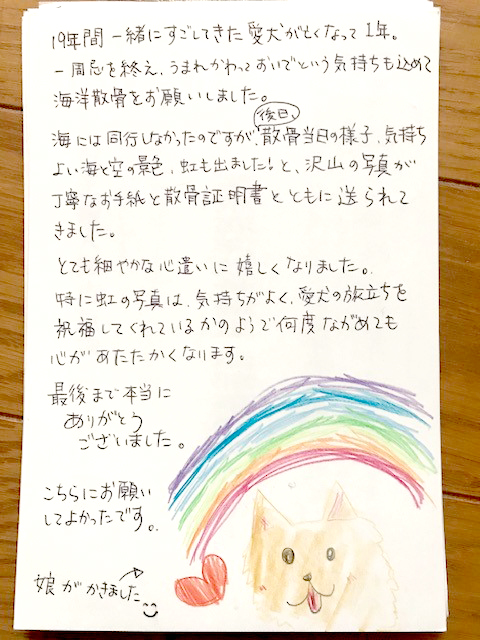 19年間一緒にすごしてきた愛犬が亡くなって1年。
一周忌を終え、うまれかわっておいでという気持ちも込めて
海洋散骨をお願いしました。
海には同行しなかったのですが、後日、散骨当日の様子、気持ち
よい海と空の景色、虹も出ました!と、沢山の写真が
丁寧なお手紙と散骨証明書とともに送られて
きました。
とても細やかな心遣いに嬉しくなりました。
特に虹の写真は、気持ちがよく、愛犬の旅立ちを
祝福してくれているかのようで何度ながめても
心があたたかくなります。
最後まで本当に
ありがとう
ございました。
こちらにお願い
してよかったです。
娘がかきました